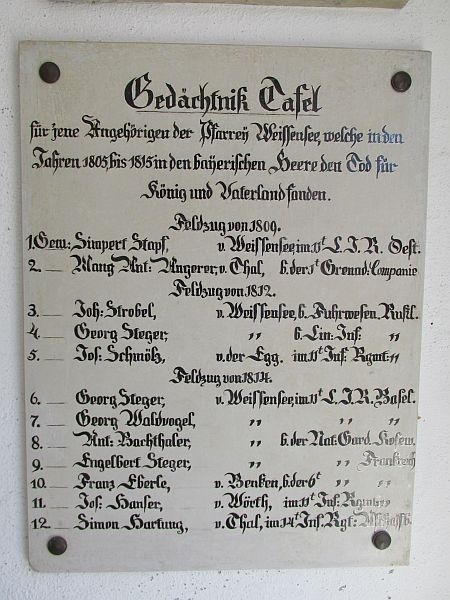 Gedächtniß Tafel
für jene Angehörigen der Pfarrey Weissensee, welche in den
Jahren 1805 bis 1815 in den bayerischen Heere den Tod für
König und Vaterland fanden.
Feldzug von 1809.
1. Gem: Simpert Stapf, v. Weissensee, im 11t L. I. R. Oest.
2. — Mang Ant: Angerer, v. Thal, b. der 1t Grenad: Companie
Feldzug von 1812.
3. — Joh: Strobel, v. Weissensee, b. Fuhrwesen. Rußl.
4. — Georg Steger, „ b. Lin: Inf: „
5. — Jos: Schmölz, v. der Egg. im 11t Inf: Rgmt: „
Feldzug von 1814.
6. — Georg Steger, v. Weissensee, im 11t L. I. R. Basel.
7. — Georg Waldvogel, „ „ „
8. — Ant: Bachthaler, „ b. der Nat: Gard.
9. — Engelbert Steger, „ „ Frankreich
10. — Franz Eberle, v. Benken, b. der 6t „ „
11. — Jos: Hanser, v. Wörth, im 11t Inf: Rgmt: „
12. — Simon Hartung, v. Thal, im 14t Inf. Rgt: